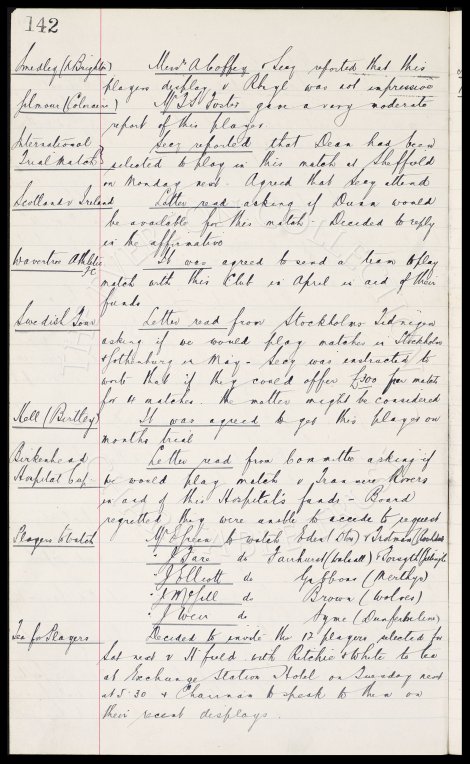 142
Smedley (N Brighton) Messrs A Coffey & Secy reported that this
players display v Rhyl was not impressive
Gilmour (Coleraine) Mr T S Foster gave a very moderate
report of this player.
International Secy reported that Dean had been
Trial Match selected to play in this match at Sheffield
on Monday next. Agreed that Secy attend
Scotland v Ireland Letter read asking if Dunn would
be available for this match - Decided to reply
in the affirmative
Wavertree Athletic It was agreed to send a team to play
FC match with this Club in April in aid of their
funds
Swedish Tour Letter read from Stockholms Tidnegen
asking if we would play matches in Stockholm
& Gothenburg in May - Secy was instructed to
write that if they could offer £300 per match
for 4 matches. the matter might be considered
Kell (Birtley) It was agreed to get this player on
months trial
Birkenhead Letter read from Committee asking if
Hospital Cup - we would play match v Tranmere Rovers
in aid of this Hospital's funds - Board
regretted they were unable to accede to request
Players to Watch Mr E Green to watch &
" J Fare do Fairhurst (Walsall) &
" J Ellicott do Gibbons (Merthyr)
" A McGill do Brown (Wolves)
" J Weir do Syme (Dunfermline)
Tea for Players Decided to invite the 12 players selected for
Sat next v H'field with Ritchie & White to tea
at Exchange Station Hotel on Tuesday next
at 5.30 & Chairman to speak to them on
their recent displays.